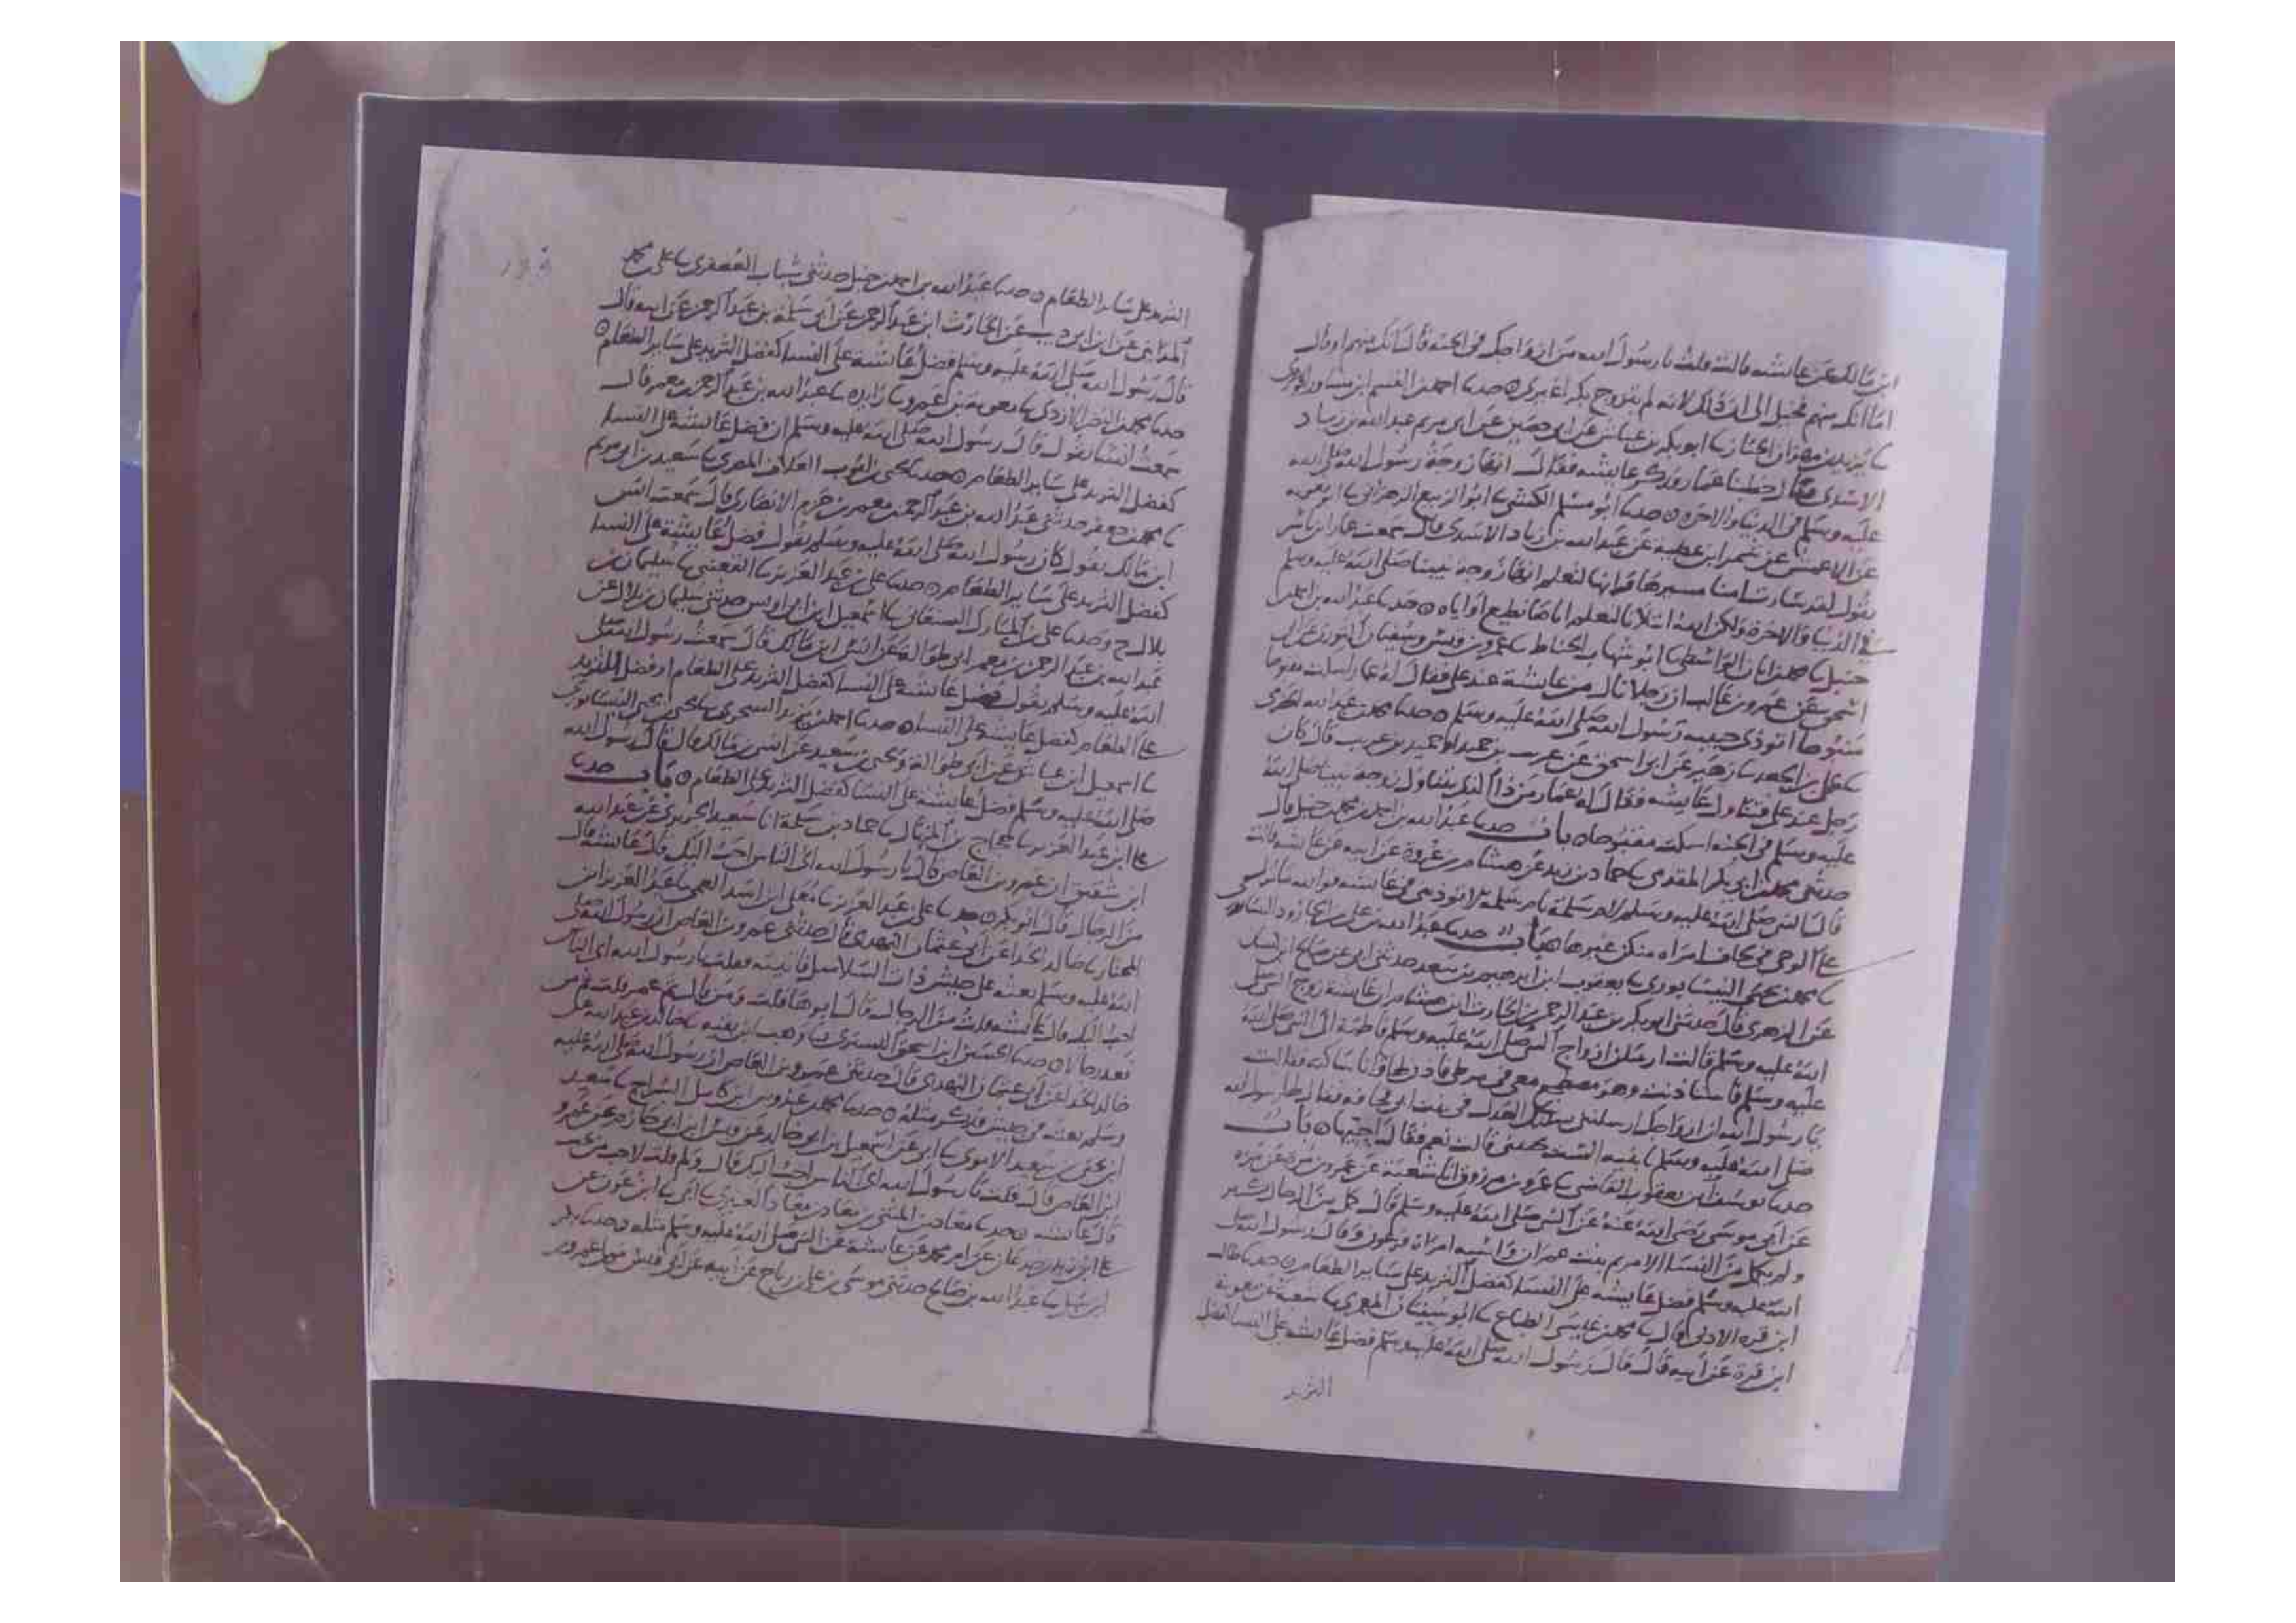 ابن مالك عن عائشه قالت قلت يا رسول الله من ازواجك في الجنه قال انك منهم او قال
اما انك منهم فخيل الي ان ذلك لانه لم يتزوج بكرا غيري ه حدثنا احمد بن القسم ابن مساور الجوهري
الجناز ثنا ابو بكر بن عياش عن ابي حصين عن ابي مريم عبد الله بن زياد
الاسدي قال خطبنا عمار وذكر عائشه فقال انها زوجة رسول الله صلى الله
عليه وسلم في الدنيا والاخره ه حدثنا ابو مسلم الكشي ثنا ابو الربيع الزهراني ثنا ابو معويه
عن الاعمش عن شمر ابن عطيه عن عبد الله بن زياد الاسدي قال سمعت عمار ابن ياسر
يقول لقد سارت امنا مسيرها وانا لنعلم انها زوجة نبينا صلى الله عليه وسلم
في الدنيا والاخرة ولكن الله ابتلانا ليعلم اياها نطيع او اياه ه حدثنا عبد الله بن احمد بن
حنبل ثنا محمد بن ابان الواسطي ثنا ابو شهاب الحناط ثنا عمرو بن قيس وسفيان الثوري عن ابي
اسحق عن عمرو بن غالب ان رجلا نال من عائشة عند علي فقال له عمار اسكت مقبوحا
منبوحا اتوذي حبيبة رسول الله صلى الله عليه وسلم ه حدثنا محمد بن عبد الله الحضرمي
ثنا علي بن الجعد ثنا زهير عن ابي اسحق عن عريب بن حميد او حميد بن عريب قال كان
رجل عند علي فتناول عايشه فقال له عمار من ذا الذي يتناول زوجة نبينا صلى الله
عليه وسلم في الجنه اسكت مقبوحا ه باب حدثنا عبد الله بن احمد بن محمد بن حنبل قال
حدثني محمد بن ابي بكر المقدمي ثنا حماد بن زيد عن هشام بن عروة عن ابيه عن عائشه قالت
قال النبي صلى الله عليه وسلم لام سلمة يا ام سلمة لا توذيني في عائشه فوالله ما نزل
علي الوحي في لحاف امراه منكن غيرها ه باب حدثنا عبد الله بن علي بن الجارود النيسابوري
ثنا محمد بن يحيى النيسابوري ثنا يعقوب ابن ابراهيم بن سعد حدثني ابي عن صالح ابن كيسان
عن الزهري قال حدثني ابو بكر بن عبد الرحمن بن الحارث ابن هشام ان عائشة زوج النبي صلى
الله عليه وسلم قالت ارسلن ازواج النبي صلى الله عليه وسلم فاطمة الى النبي صلى الله
عليه وسلم فاستاذنت وهو مضطجع معي في مرطي فاذن لها وانا ساكته فقالت
يا رسول الله ان ازواجك ارسلنني يسالنك العدل في بنت ابي قحافه فقال لها رسول الله
صلى الله عليه وسلم اي بنيه الست تحبيني قالت نعم فقال احبيها ه باب
حدثنا يوسف ابن يعقوب القاضي ثنا عمرو بن مرزوق انا شعبة عن عمرو بن مرة عن مره
عن ابي موسى رضي الله عنه عن النبي صلى الله عليه وسلم قال كمل من الرجال كثير
ولم يكمل من النسا الا مريم بنت عمران واسيه امراة فرعون وقال رسول الله صلى
الله عليه وسلم فضل عايشه على النسا كفضل الثريد على ساير الطعام ه حدثنا طالب
ابن قره الادني قال ثنا محمد بن عيسى الطباع ثنا ابو سفيان المعمري ثنا شعبة عن معوية
ابن قرة عن ابيه قال قال رسول الله صلى الله عليه وسلم فضل عائشه على النسا كفضل
الثريد
الثريد على ساير الطعام ه حدثنا عبد الله بن احمد بن حنبل حدثني شباب العصفري ثنا علي بن محمد
المدايني عن ابن ابي ذيب عن الحارث ابن عبد الرحمن عن ابي سلمة بن عبد الرحمن عن ابيه قال
قال رسول الله صلى الله عليه وسلم فضل عائشة على النسا كفضل الثريد على ساير الطعام ه
حدثنا محمد بن النضر الازدي ثنا معوية بن عمرو ثنا زايده ثنا عبد الله بن عبد الرحمن بن معمر قال
سمعت انسا يقول قال رسول الله صلى الله عليه وسلم ان فضل عائشة على النسا
كفضل الثريد على ساير الطعام ه حدثنا يحيى بن ايوب العلاف المصري ثنا سعيد بن ابي مريم
ثنا محمد بن جعفر حدثني عبد الله بن عبد الرحمن بن معمر بن حزم الانصاري قال سمعت انس
ابن مالك يقول كان رسول الله صلى الله عليه وسلم يقول فضل عايشة على النسا
كفضل الثريد على ساير الطعام ه حدثنا علي بن عبد العزيز ثنا القعنبي ثنا سليمان بن
بلال ح وحدثنا علي بن المبارك الصنعاني ثنا اسمعيل ابن ابي اويس حدثني سليمان بن بلال عن
عبد الله بن عبد الرحمن بن معمر ابي طوالة عن انس ابن مالك قال سمعت رسول الله صلى
الله عليه وسلم يقول فضل عائشه على النسا كفضل الثريد على الطعام او فضل الثريد
على الطعام كفضل عايشه على النسا ه حدثنا احمد بن السجزي ثنا يحيى بن يحيى النيسابوري
ثنا اسمعيل ابن عياش عن ابي طوالة ويحيى بن سعيد عن انس بن مالك قال قال رسول الله
صلى الله عليه وسلم فضل عائشة على النسا كفضل الثريد على الطعام ه باب حدثنا
علي ابن عبد العزيز ثنا حجاج بن المنهال ثنا حماد بن سلمة انا سعيد الجريري عن عبد الله
ابن شقيق ان عمرو بن العاص قال يا رسول الله اي الناس احب اليك قال عائشة قال
من الرجال قال ابو بكر ه حدثنا علي بن عبد العزيز ثنا معلى ابن اسد العمي ثنا عبد العزيز ابن
المختار ثنا خالد الحذا عن ابي عثمان النهدي قال حدثني عمرو بن العاص ان رسول الله صلى
الله عليه وسلم بعثه على جيش ذات السلاسل فاتيته فقلت يا رسول الله اي الناس
احب اليك قال عائشه قلت من الرجال قال ابوها قلت ثم من قال ثم عمر قلت ثم من
فعد رجالا ه حدثنا الحسين ابن اسحق التستري ثنا وهب ابن بقيه ثنا خالد بن عبد الله عن
خالد الحذا عن ابي عثمان النهدي قال حدثني عمرو بن العاص ان رسول الله صلى الله عليه
وسلم بعثه في جيش فذكر مثله ه حدثنا محمد بن عبدوس ابن كامل السراج ثنا سعيد
ابن يحيى بن سعيد الاموي ثنا ابي عن اسمعيل بن ابي خالد عن قيس ابن ابي حازم عن عمرو
ابن العاص قال قلت يا رسول الله اي الناس احب اليك قال ولم قلت لاحب من تحب
قال عائشه ه حدثنا معاذ بن المثنى بن معاذ بن معاذ العنبري ثنا ابي ثنا ابن عون عن
علي ابن زيد بن جدعان عن ام محمد عن عائشة عن النبي صلى الله عليه وسلم مثله ه حدثنا بكر
ابن سهل ثنا عبد الله بن صالح حدثني موسى بن علي بن رباح عن ابيه عن ابي قيس مولى عمرو بن